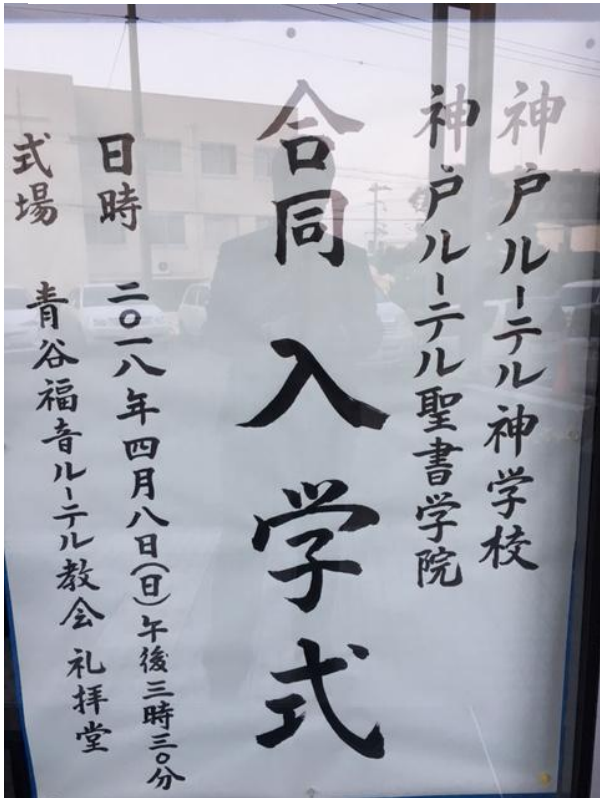 神戸ルーテル神学校
神戸ルーテル聖書学院
合同入学式
日時 二〇一八年四月八日(日)午後三時三〇分
式場 青谷福音ルーテル教会 礼拝堂